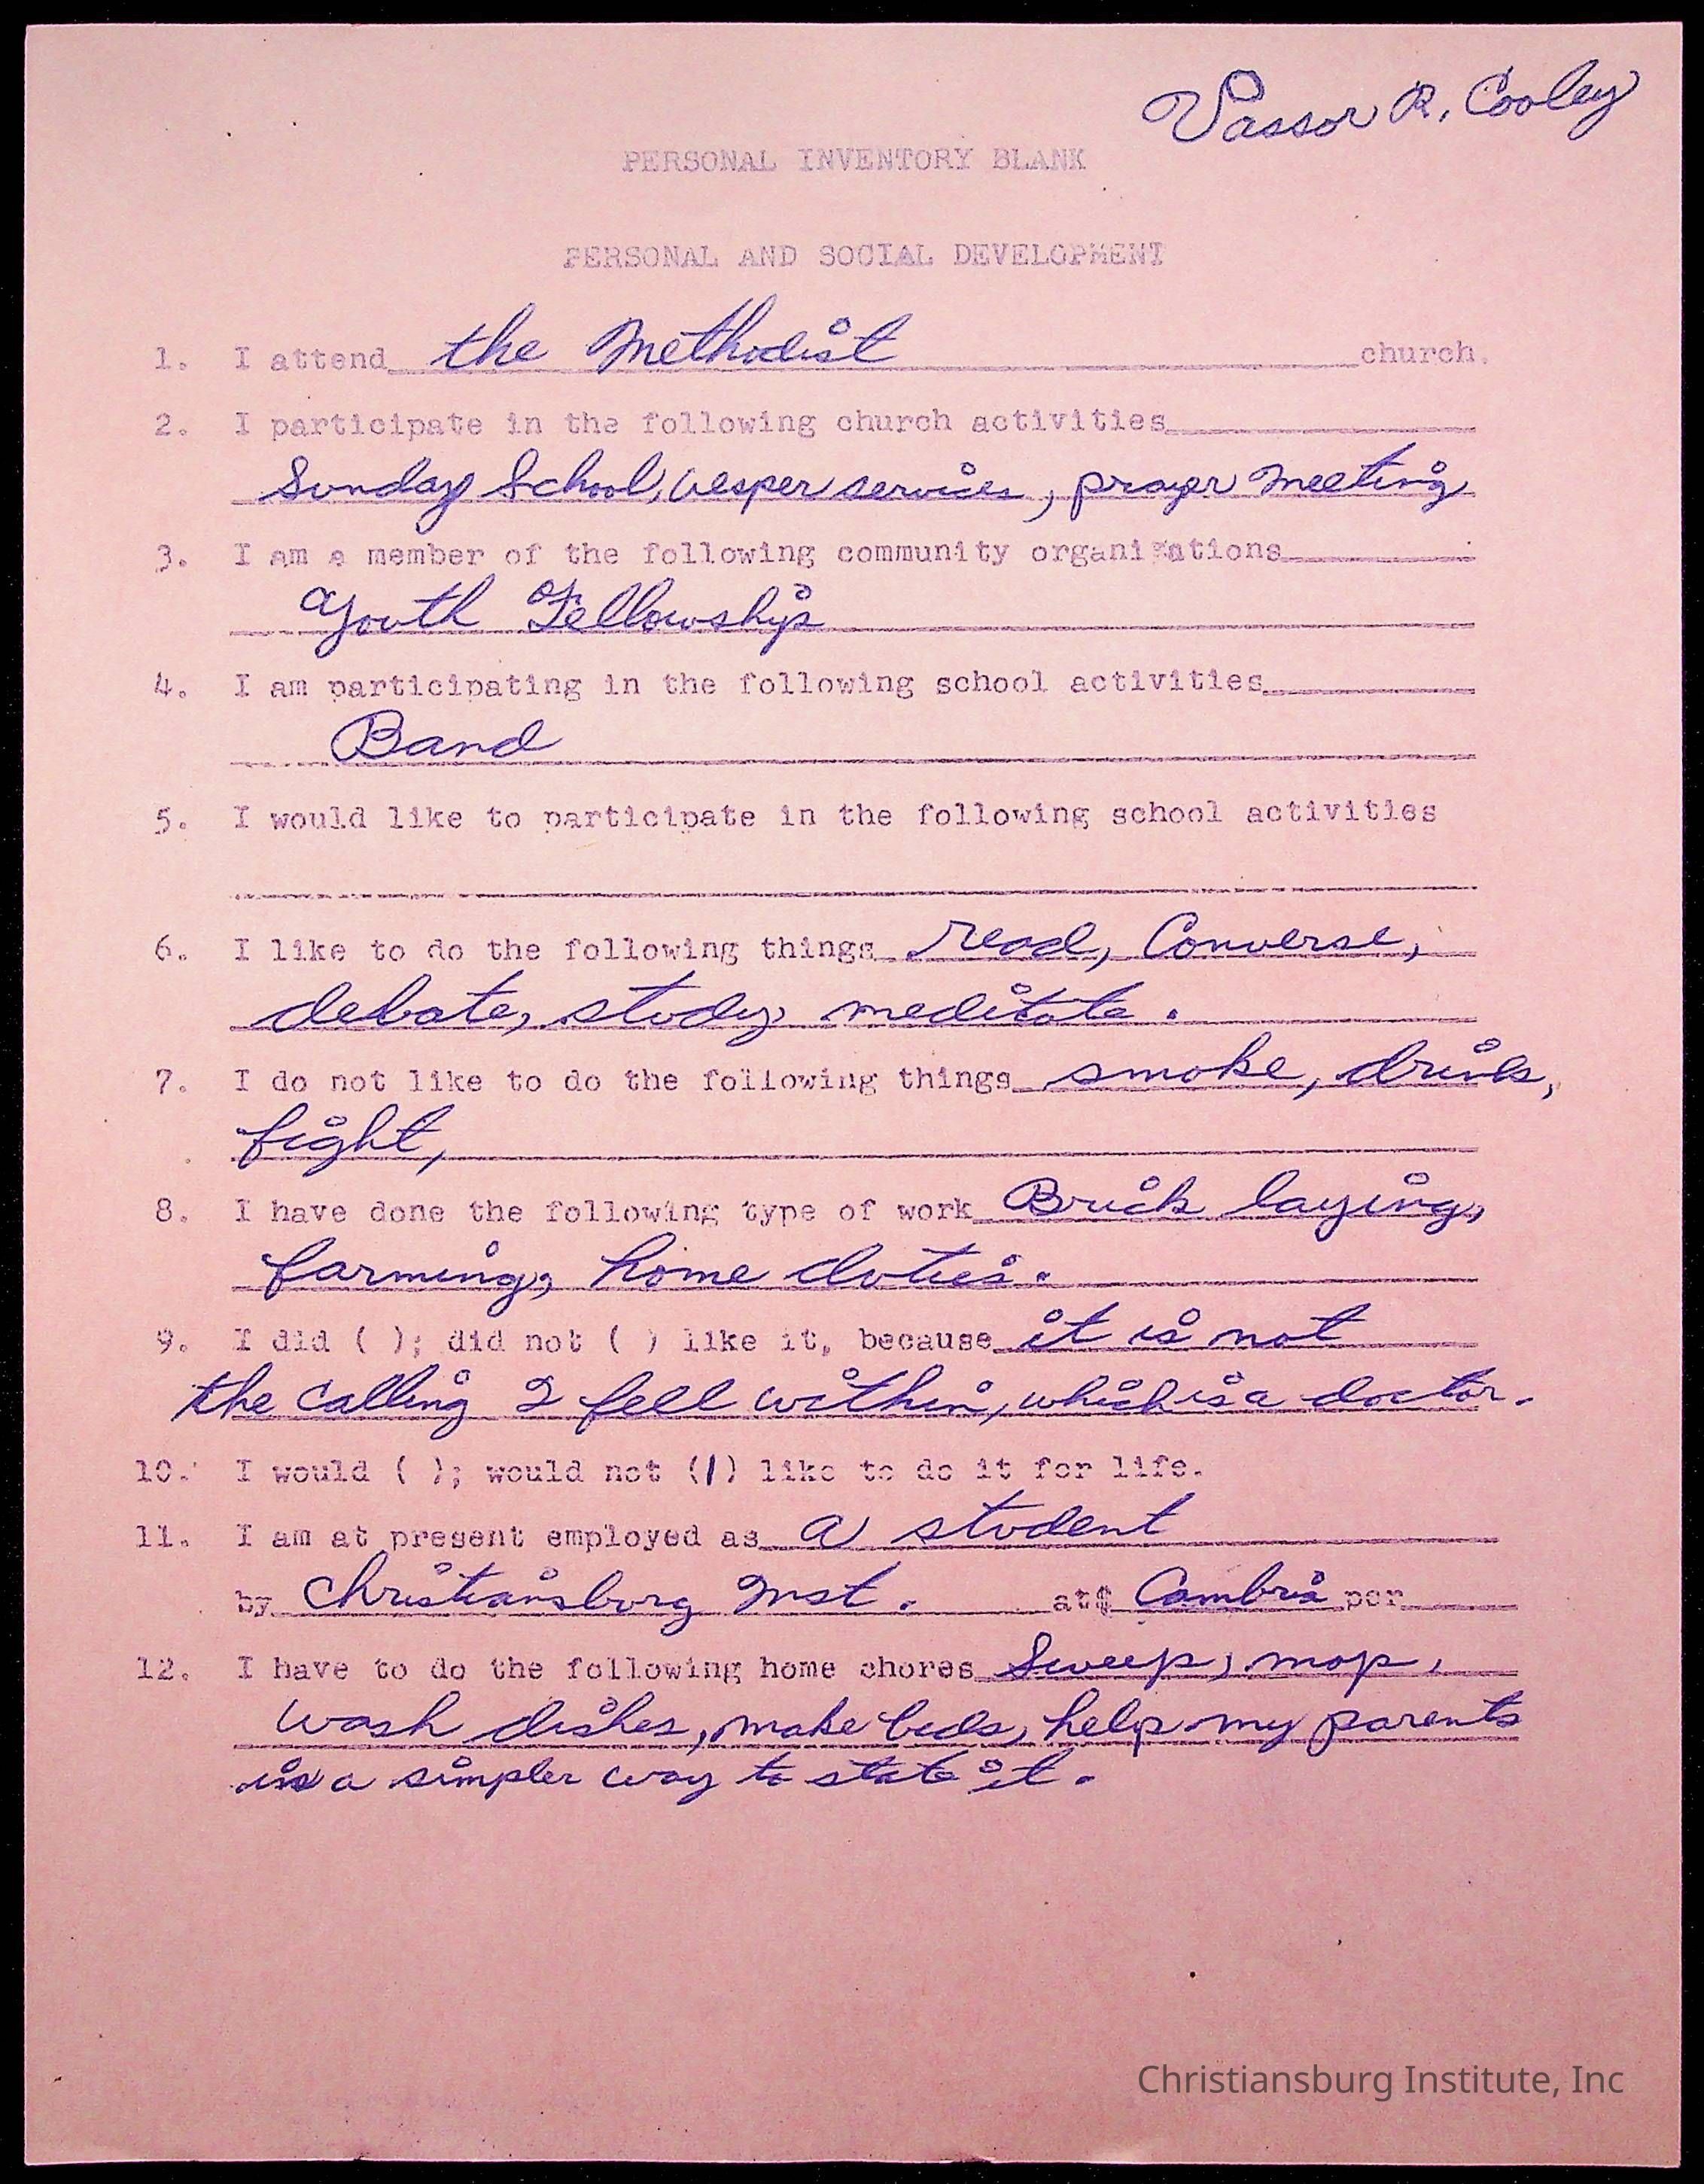 Vassor R. Cooley
PERSONAL INVENTORY BLANK
PERSONAL AND SOCIAL DEVELOPMENT
1. I attend the Methodist church.
2. I participate in the following church activities
Sunday School, Vesper services, prayer meeting
3. I am a member of the following community organizations
Youth Fellowship
4. I am participating in the following school activities
Band
5. I would like to participate in the following school activities
6. I like to do the following things read, Converse,
debate, study, meditate.
7. I do not like to do the following things smoke, drink,
fight,
8. I have done the following type of work Brick laying,
farming, home duties.
9. I did ( ); did not ( ) like it, because it is not
the calling I feel within, which is a doctor.
10. I would ( ); would not (/) like to do it for life.
11. I am at present employed as a student
by Christiansburg Inst. at $ Cambria per
12. I have to do the following home chores Sweep, mop,
wash dishes, make beds, help my parents
in a simpler way to state it.
Christiansburg Institute, Inc